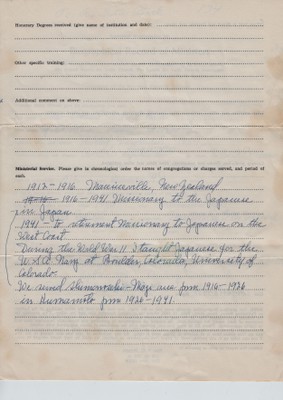 Honorary Degrees received (give name of institution and date):
Other specific training:
Additional comment on above:
Ministerial Service. Please give in chronological order the names of congregations or charges served, and period of
each.
1912-1916 New Zealand
1916-1941 Missionary to the Japanese
from Japan
1941- to retirement Missionary to Japanese on the
West Coast
During the World War II I taught Japanese for the
U.S. Navy at Boulder, Colorado, University of
Colorado
We served area from 1916-1926
in Kumamoto from 1926-1941.